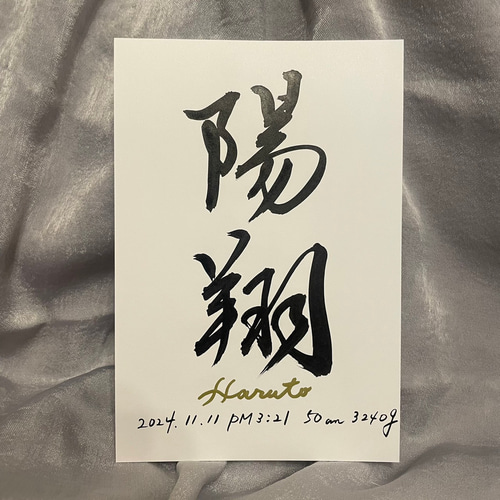 陽
翔
Haruto
2024.11.11 PM3:21 50cm 3240g